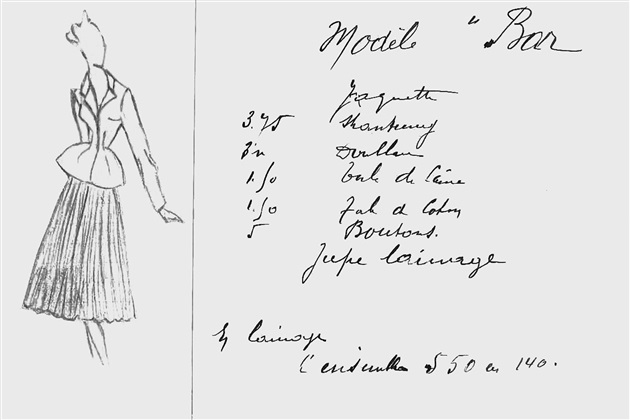 Modèle "Bar
Jaquette
3.75 Shantung
3m Doublure
1.50 toile de laine
1.50 de Coton
5 Boutons.
Jupe lainage
lainage
l'ensemble 550 en 140.